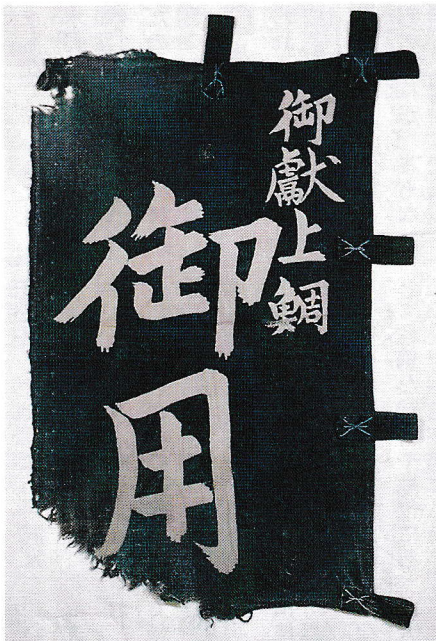 御献上鯛
御用